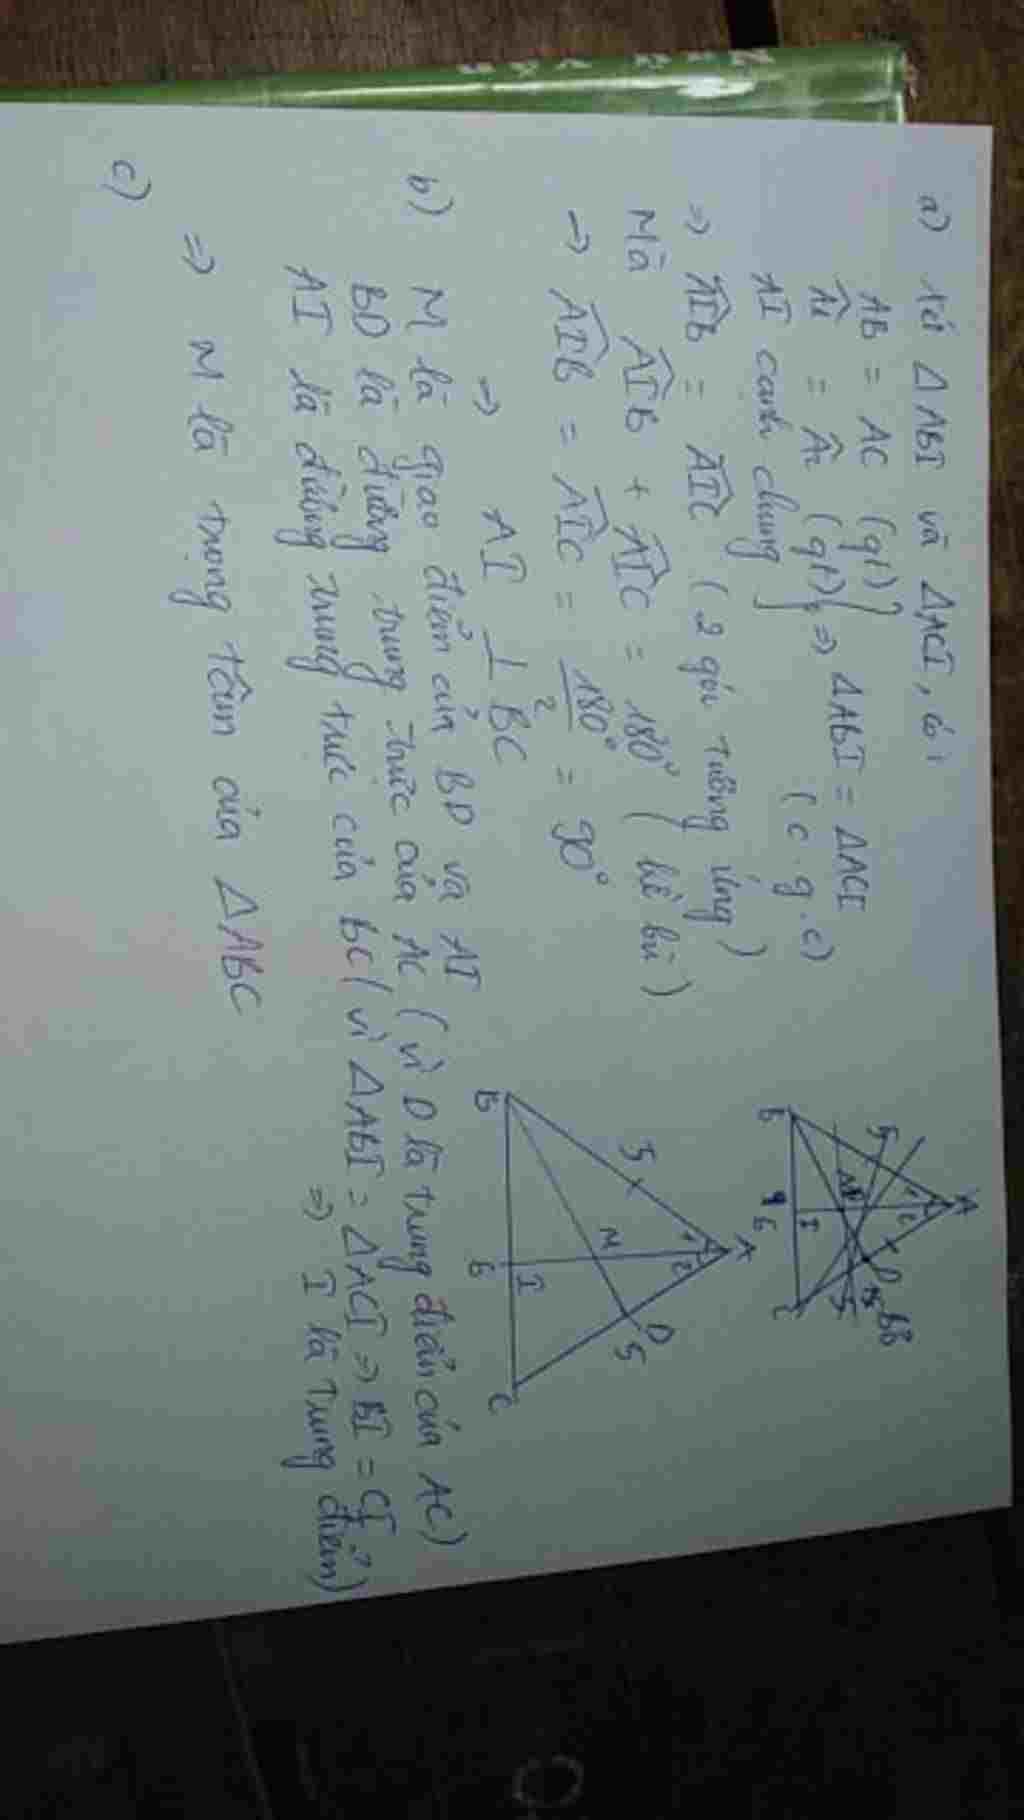 a) Xét Δ ABI và ΔACI, có:
AB = AC (gt)
Â1 = Â2 (gt) } => ΔABI = ΔACI
AI cạnh chung (c.g.c)
=> AIB = AIC (2 góc tương ứng)
Mà AIB + AIC = 180° (kề bù)
-> AIB = AIC = 180°/2 = 90°
-> AI ⊥ BC
b) M là giao điểm của BD và AI
BD là đường trung trực của AC (vì D là trung điểm của AC)
AI là đường trung trực của BC (vì ΔABI = ΔACI => BI = CI
=> I là trung điểm)
=> M là trọng tâm của ΔABC
c)
A
B
C
D
M
I
5
5
6
1
2
A
B
C
D
M
I
5
5
6
1
2